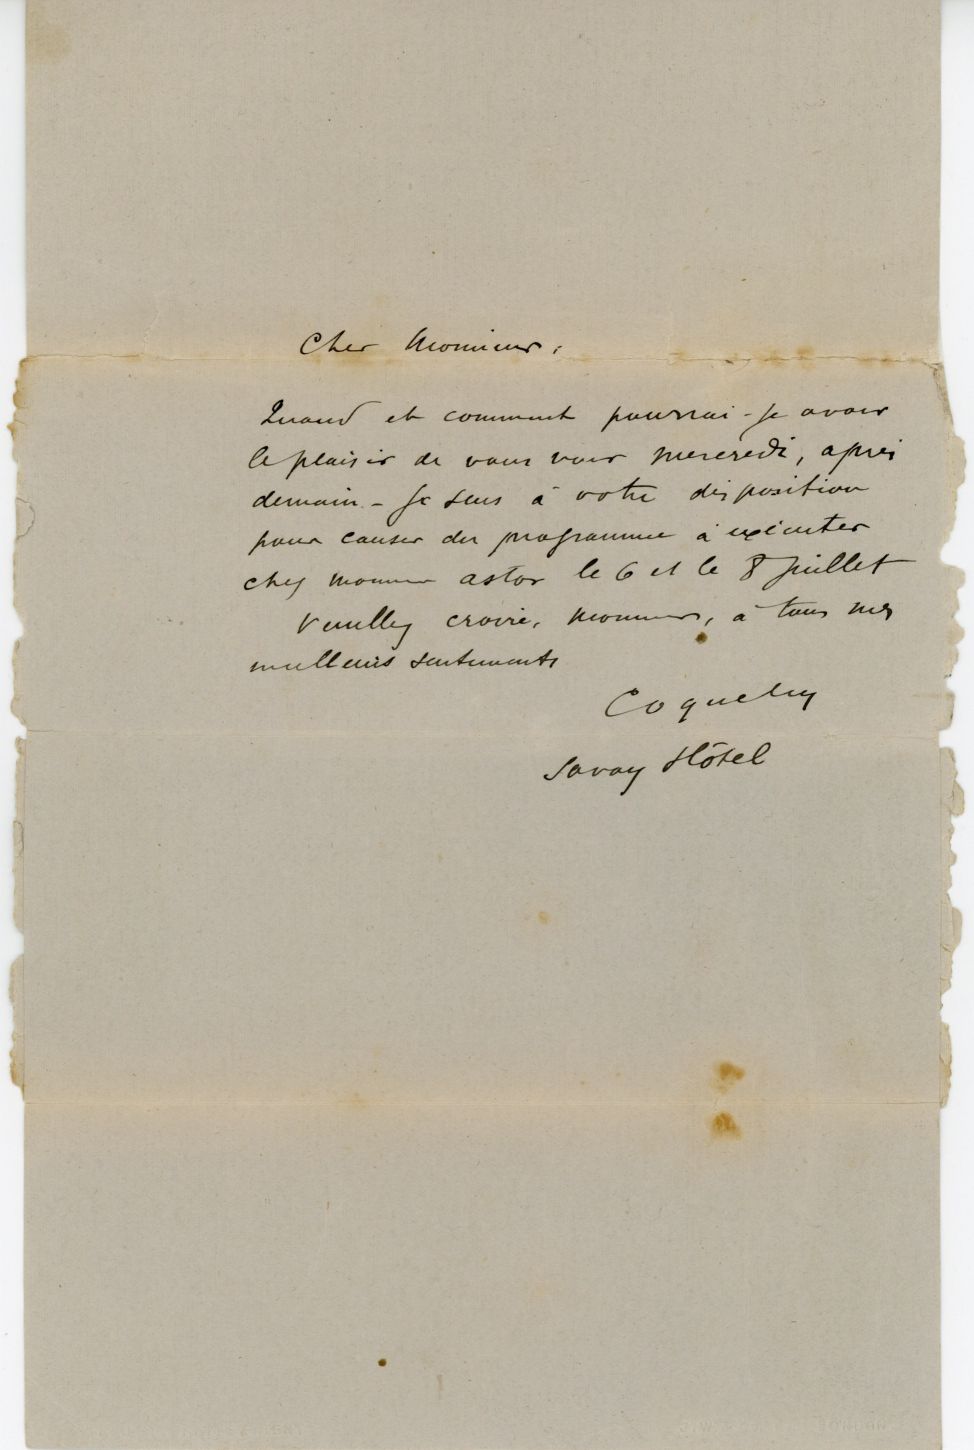 Cher Monsieur,
Quand et comment pourrai-je avoir
le plaisir de vous voir mercredi, après
demain - Je suis à votre disposition
pour causer du programme à exécuter
chez monsieur astor le 6 et le 8 Juillet
Veuillez croire, monsieur, à tous mes
meilleurs sentiments
Coquelin
Savoy Hôtel